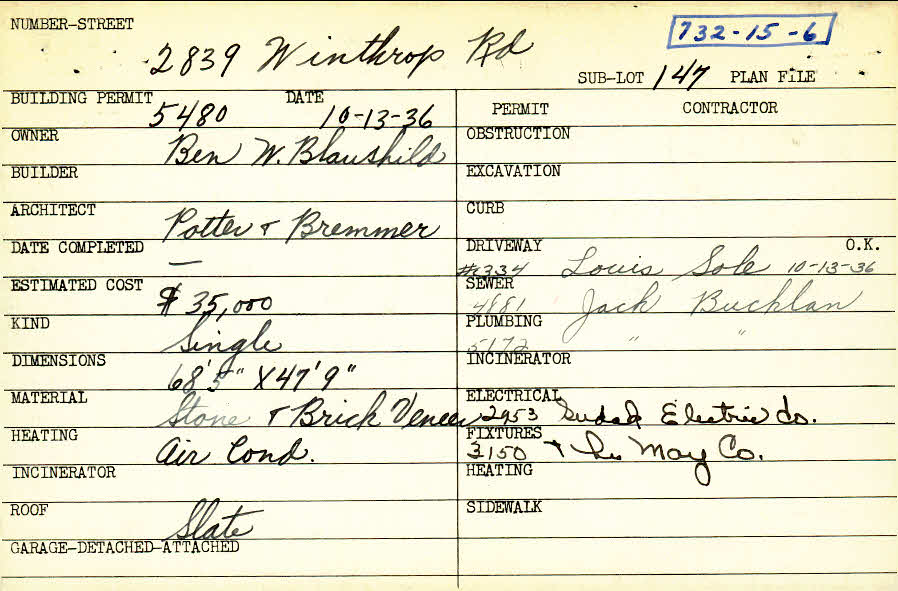 NUMBER-STREET 732-15-6
2839 Winthrop Rd
SUB-LOT 147 PLAN FILE
BUILDING PERMIT 5480 DATE 10-13-36
OWNER Ben W. Blaushild
BUILDER
ARCHITECT Potter & Bremmer
DATE COMPLETED —
ESTIMATED COST $35,000
KIND Single
DIMENSIONS 68'5" X 47'9"
MATERIAL Stone & Brick Veneer
HEATING Air Cond.
INCINERATOR
ROOF Slate
GARAGE-DETACHED-ATTACHED
PERMIT CONTRACTOR
OBSTRUCTION
EXCAVATION
CURB
DRIVEWAY O.K.
#334 Louis Sole 10-13-36
SEWER
4881 Jack Bucklan
PLUMBING
5172 " "
INCINERATOR
ELECTRICAL 2953 Electric Co.
FIXTURES
3150 May Co.
HEATING
SIDEWALK